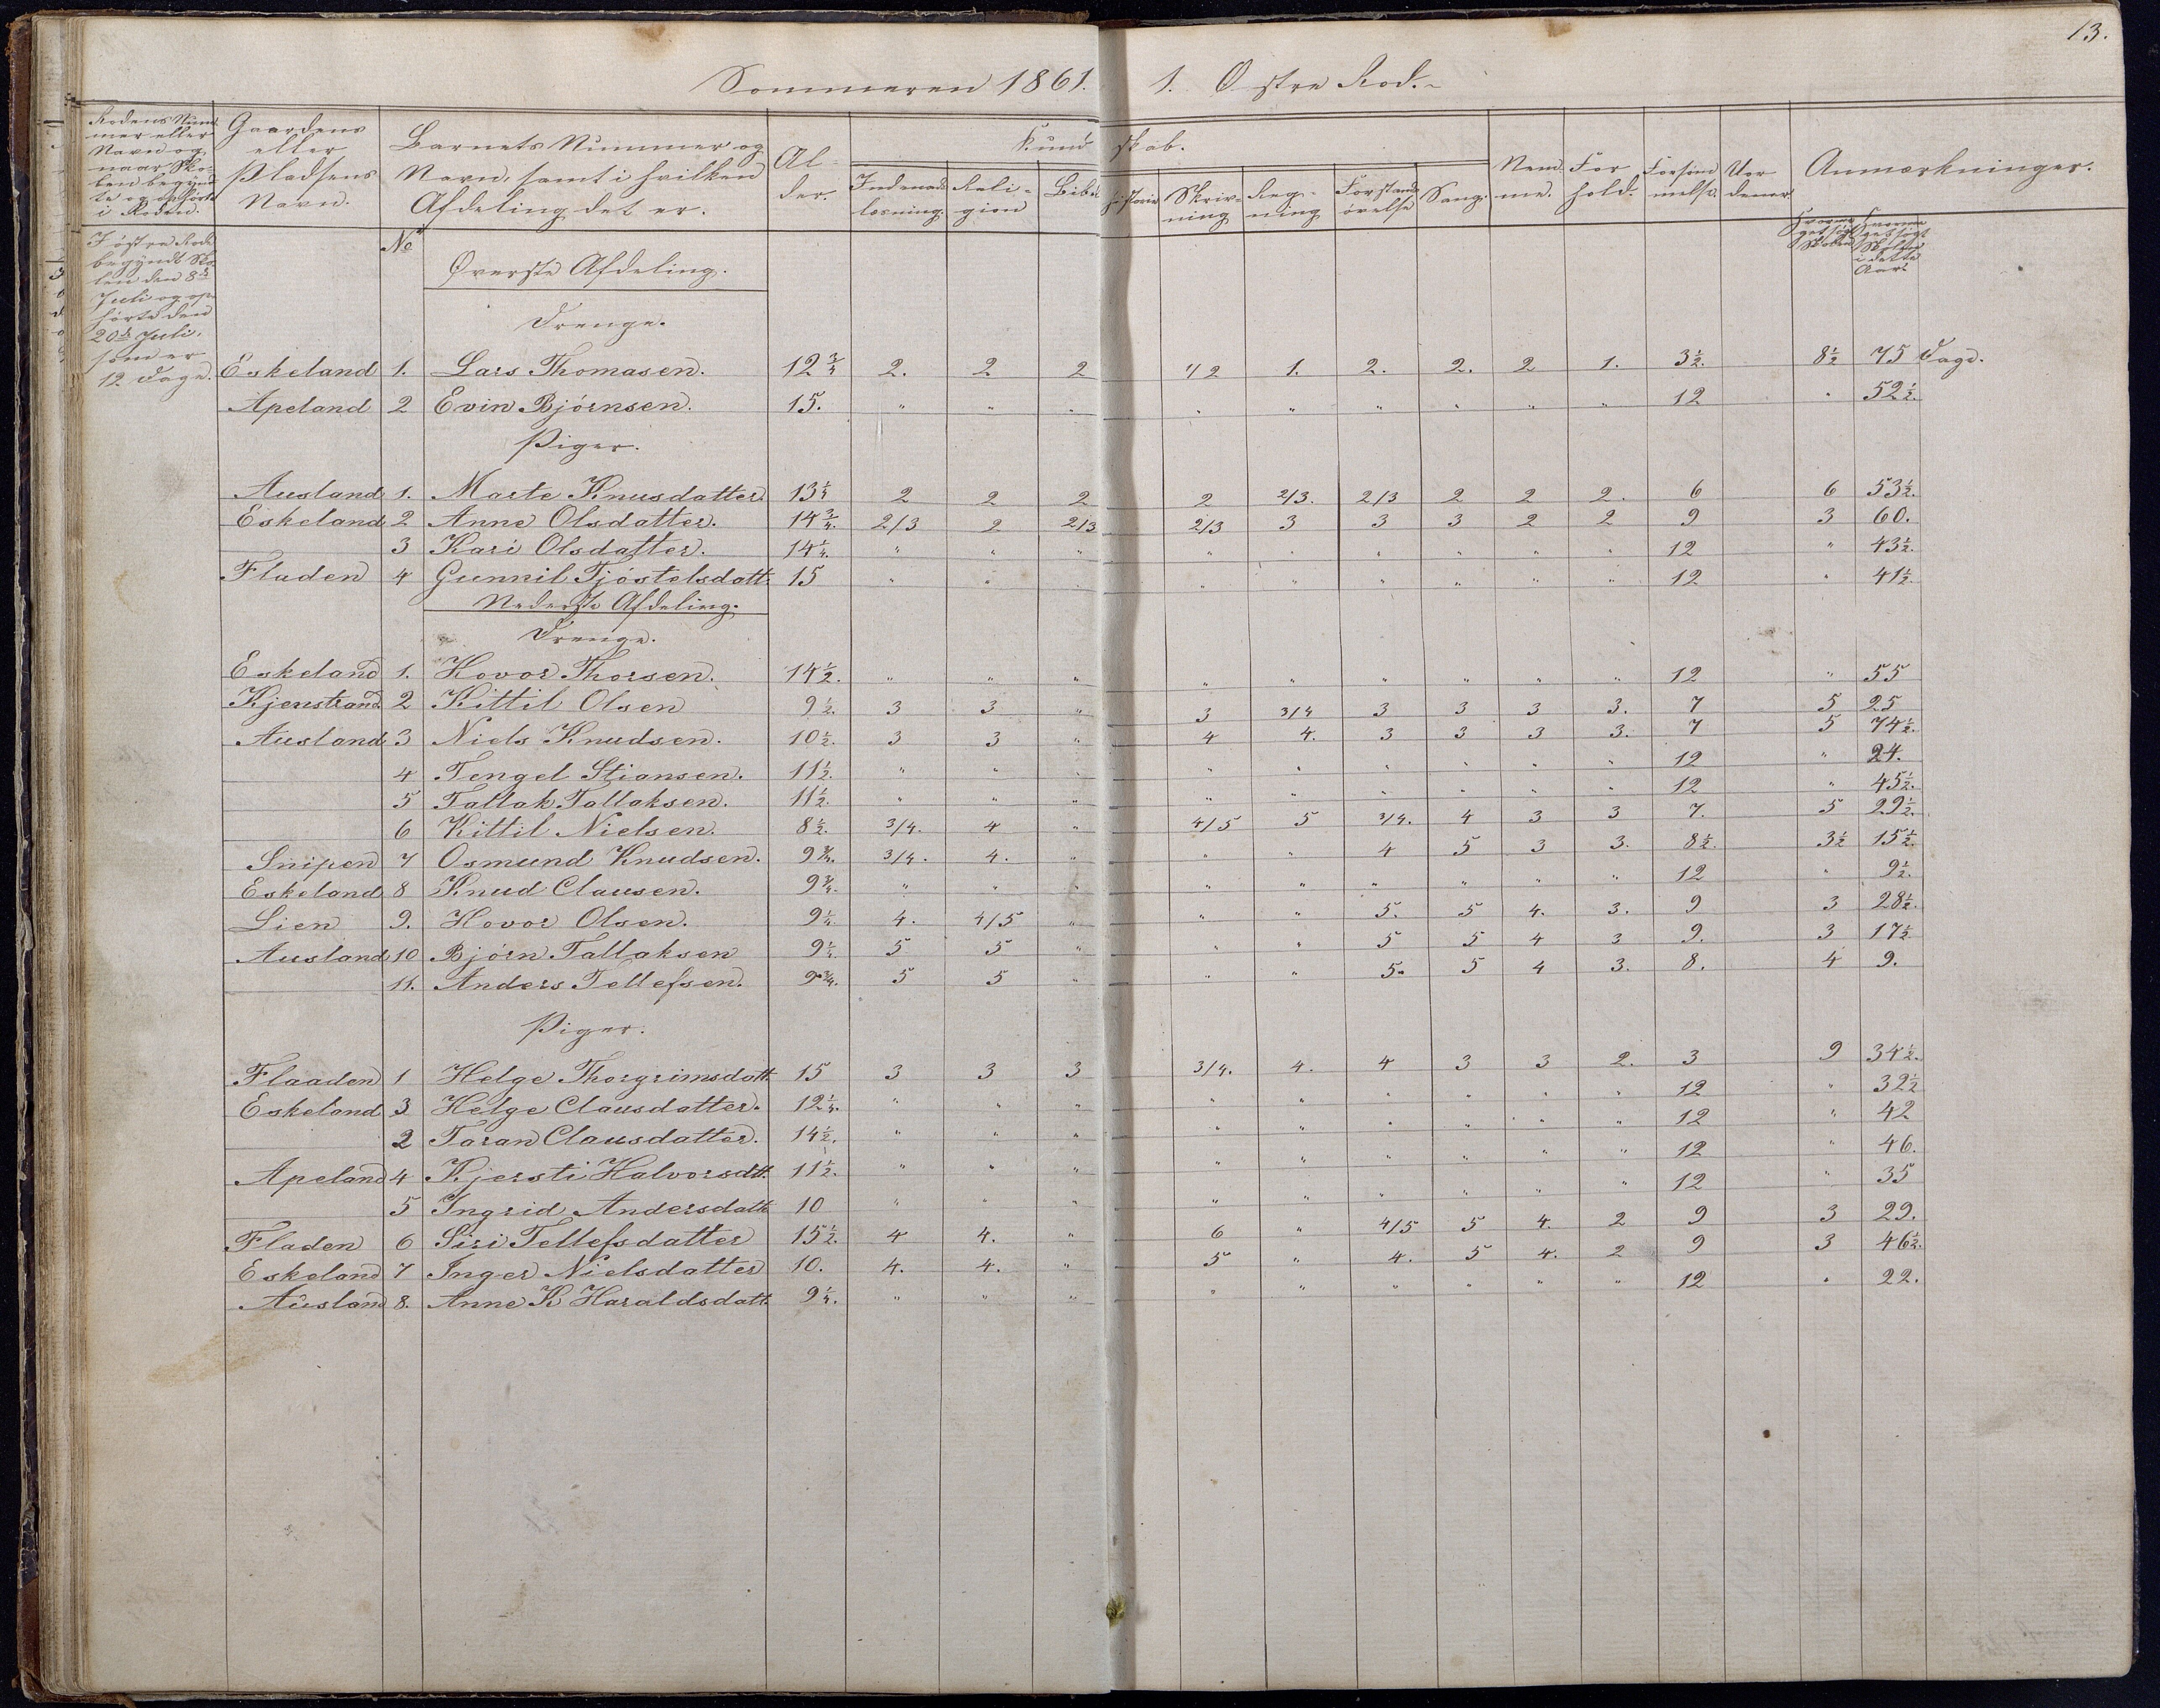 13.
Sommeren 1861. 1. Østre Rod.
Rodens Num-
mer eller
Navn og
naar Sko-
len begynd-
te og ophørte
i Roden.
Gaardens
eller
Pladsens
Navn.
Barnets Nummer og
Navn, samt i hvilken
Afdeling det er.
Al-
der.
Kundskab.
Indenads-
læsning.
Reli-
gion
Bibelhistorie
Skriv-
ning
Reg-
ning
Forstands-
øvelse
Sang.
Nem-
me.
For-
hold.
Forsøm-
melse.
Uor-
dener
Anmærkninger.
I østre Rode
begyndte Sko-
len den 8de
Juli og op-
hørte den
20de Juli,
som er
12 Dage.
No
Øverste Afdeling.
Drenge.
Eskeland 1. Lars Thomasen. 12 3/4 2. 2 2 1/2 1. 2. 2. 2 1. 3 1/2. 8 1/2 75 Dage.
Apeland 2 Evin Bjørnsen. 15. " " " " " " " " " 12 " 52 1/2.
Piger.
Ausland 1. Marte Knusdatter. 13 1/4 2 2 2 2 2/3. 2/3 2 2 2. 6 6 53 1/2.
Eskeland 2 Anne Olsdatter. 14 3/4. 2/3 2 2/3 2/3 3 3 3 2 2 9 3 60.
3 Kari Olsdatter. 14 1/4. " " " " " " " " " 12 " 43 1/2.
Fladen 4 Gunnil Tjøstelsdatt. 15 " " " " " " " " " 12 " 41 1/2.
Nederste Afdeling.
Drenge.
Eskeland 1. Hovor Thorsen. 14 1/2. " " " " " " " " " 12 " 55
Kjenstrand 2 Kittil Olsen 9 1/2. 3 3 " 3 3/4 3 3 3 3. 7 5 25
Ausland 3 Niels Knudsen. 10 1/2. 3 3 " 4 4. 3 3 3 3. 7 5 74 1/2.
4 Tengel Stiansen. 11 1/2. " " " " " " " " " 12 " 24.
5 Tallak Tallaksen. 11 1/2. " " " " " " " " " 12 " 45 1/2.
6 Kittil Nielsen. 8 1/2. 3/4. 4 " 4/5 5 3/4. 4 3 3 7. 5 29 1/2.
Snipen 7 Osmund Knudsen. 9 3/4. 3/4. 4. " " " 4 5 3 3. 8 1/2. 3 1/2 15 1/2.
Eskeland 8 Knud Clausen. 9 3/4. " " " " " " " " " 12 " 9 1/2.
Lien 9. Hovor Olsen. 9 1/4. 4. 4/5 " " " 5. 5 4. 3. 9 3 28 1/2.
Ausland 10 Bjørn Tallaksen 9 1/4. 5 5 " " " 5 5 4 3 9. 3 17 1/2
11. Anders Tellefsen. 9 3/4. 5 5 " " " 5. 5 4 3. 8. 4 9.
Piger.
Flaaden 1 Helge Thorgrimsdatt. 15 3 3 3 3/4. 4. 4 3 3 2. 3 9 34 1/2.
Eskeland 3 Helge Clausdatter. 12 1/4. " " " " " " " " " 12 " 32 1/2
2 Taran Clausdatter. 14 1/2. " " " " " " " " " 12 " 42
Apeland 4 Kjersti Halvorsdtt. 11 1/2. " " " " " " " " " 12 " 46.
5 Ingrid Andersdatt. 10 " " " " " " " " " 12 " 35
Fladen 6 Siri Tellefsdatter 15 1/2. 4 4. " 6 " 4/5 5 4. 2 9 3 29.
Eskeland 7 Inger Nielsdatter 10. 4. 4. " 5 " 4. 5 4. 2 9 3 46 1/2.
Ausland 8. Anne K Haraldsdatt. 9 1/4. " " " " " " " " " 12 " 22.